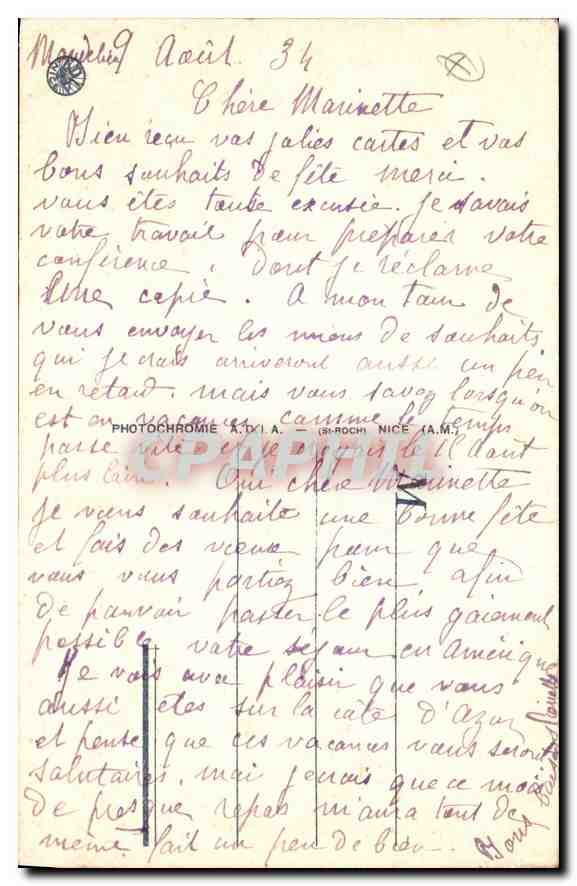 9 Août 34
Chère Marinette
Bien reçu vos jolies cartes et vos
bons souhaits de fête merci.
vous êtes toute excusée. Je savais
votre travail pour préparer votre
conférence, Dont je réclame
Une copie. A mon tour de
vous envoyer les miens de souhaits
qui je crois arriveront aussi un peu
en retard, mais vous savez lorsqu'on
est en vacances comme le temps
PHOTOCHROMIE A.D.I.A. — (St-ROCH) NICE (A.M.)
passe vite et je croyais le 11 août
CPAPHIL
plus loin. Oui chère Marinette
je vous souhaite une bonne fête
et fais des vœux pour que
vous vous portiez bien afin
de pouvoir passer le plus gaiement
possible votre séjour en Amérique
Je vois avec plaisir que vous
aussi êtes sur la côte d'Azur
et pense que ces vacances vous seront
salutaires, moi je crois que ce mois
de presque repos m'aura tout de
même fait un peu de bien.
Bons Baisers